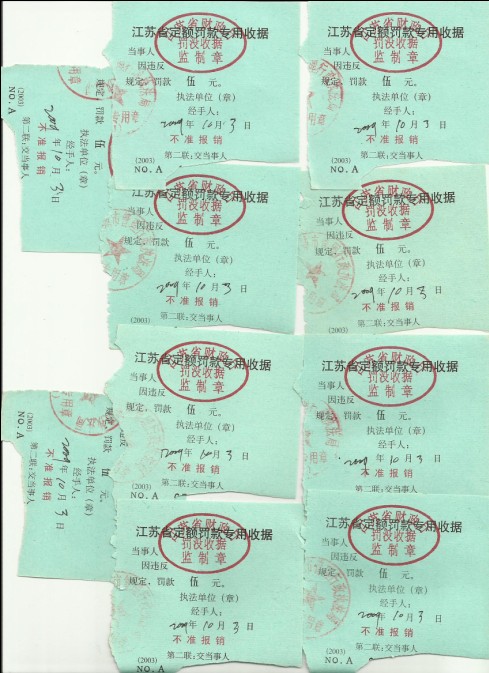 江苏省定额罚款专用收据
江苏省财政
罚没收据
监制章
当事人
因违反
规定、罚款 伍 元。
执法单位（章）
经手人：
2009年10月3日
不准报销
(2003) 第二联：交当事人
NO. A
专用章
江苏省定额罚款专用收据
江苏省财政
罚没收据
监制章
当事人
因违反
规定、罚款 伍 元。
执法单位（章）
经手人：
2009年10月3日
不准报销
(2003) 第二联：交当事人
NO. A
用章
规定、罚款 伍 元。
执法单位（章）
经手人：
2009年10月3日
不准报销
(2003) 第二联：交当事人
NO. A
用章
江苏省定额罚款专用收据
江苏省财政
罚没收据
监制章
当事人
因违反
规定、罚款 伍 元。
执法单位（章）
经手人：
2009年10月3日
不准报销
(2003) 第二联：交当事人
江苏省定额罚款专用收据
江苏省财政
罚没收据
监制章
当事人
因违反
规定、罚款 伍 元。
执法单位（章）
经手人：
2009年10月3日
不准报销
(2003) 第二联：交当事人
江苏省定额罚款专用收据
江苏省财政
罚没收据
监制章
当事人
因违反
规定、罚款 伍 元。
执法单位（章）
经手人：
2009年10月3日
不准报销
(2003) 第二联：交当事人
NO. A
江苏省定额罚款专用收据
江苏省财政
罚没收据
监制章
当事人
因违反
规定、罚款 伍 元。
执法单位（章）
经手人：
2009年10月3日
不准报销
(2003) 第二联：交当事人
NO. A
用章
因违反
规定、罚款 伍 元。
执法单位（章）
经手人：
2009年10月3日
不准报销
(2003) 第二联：交当事人
NO. A
用章
江苏省定额罚款专用收据
江苏省财政
罚没收据
监制章
当事人
因违反
规定、罚款 伍 元。
执法单位（章）
经手人：
2009年10月3日
不准报销
(2003) 第二联：交当事人
NO. A
江苏省定额罚款专用收据
江苏省财政
罚没收据
监制章
当事人
因违反
规定、罚款 伍 元。
执法单位（章）
经手人：
2009年10月3日
不准报销
(2003) 第二联：交当事人
NO. A